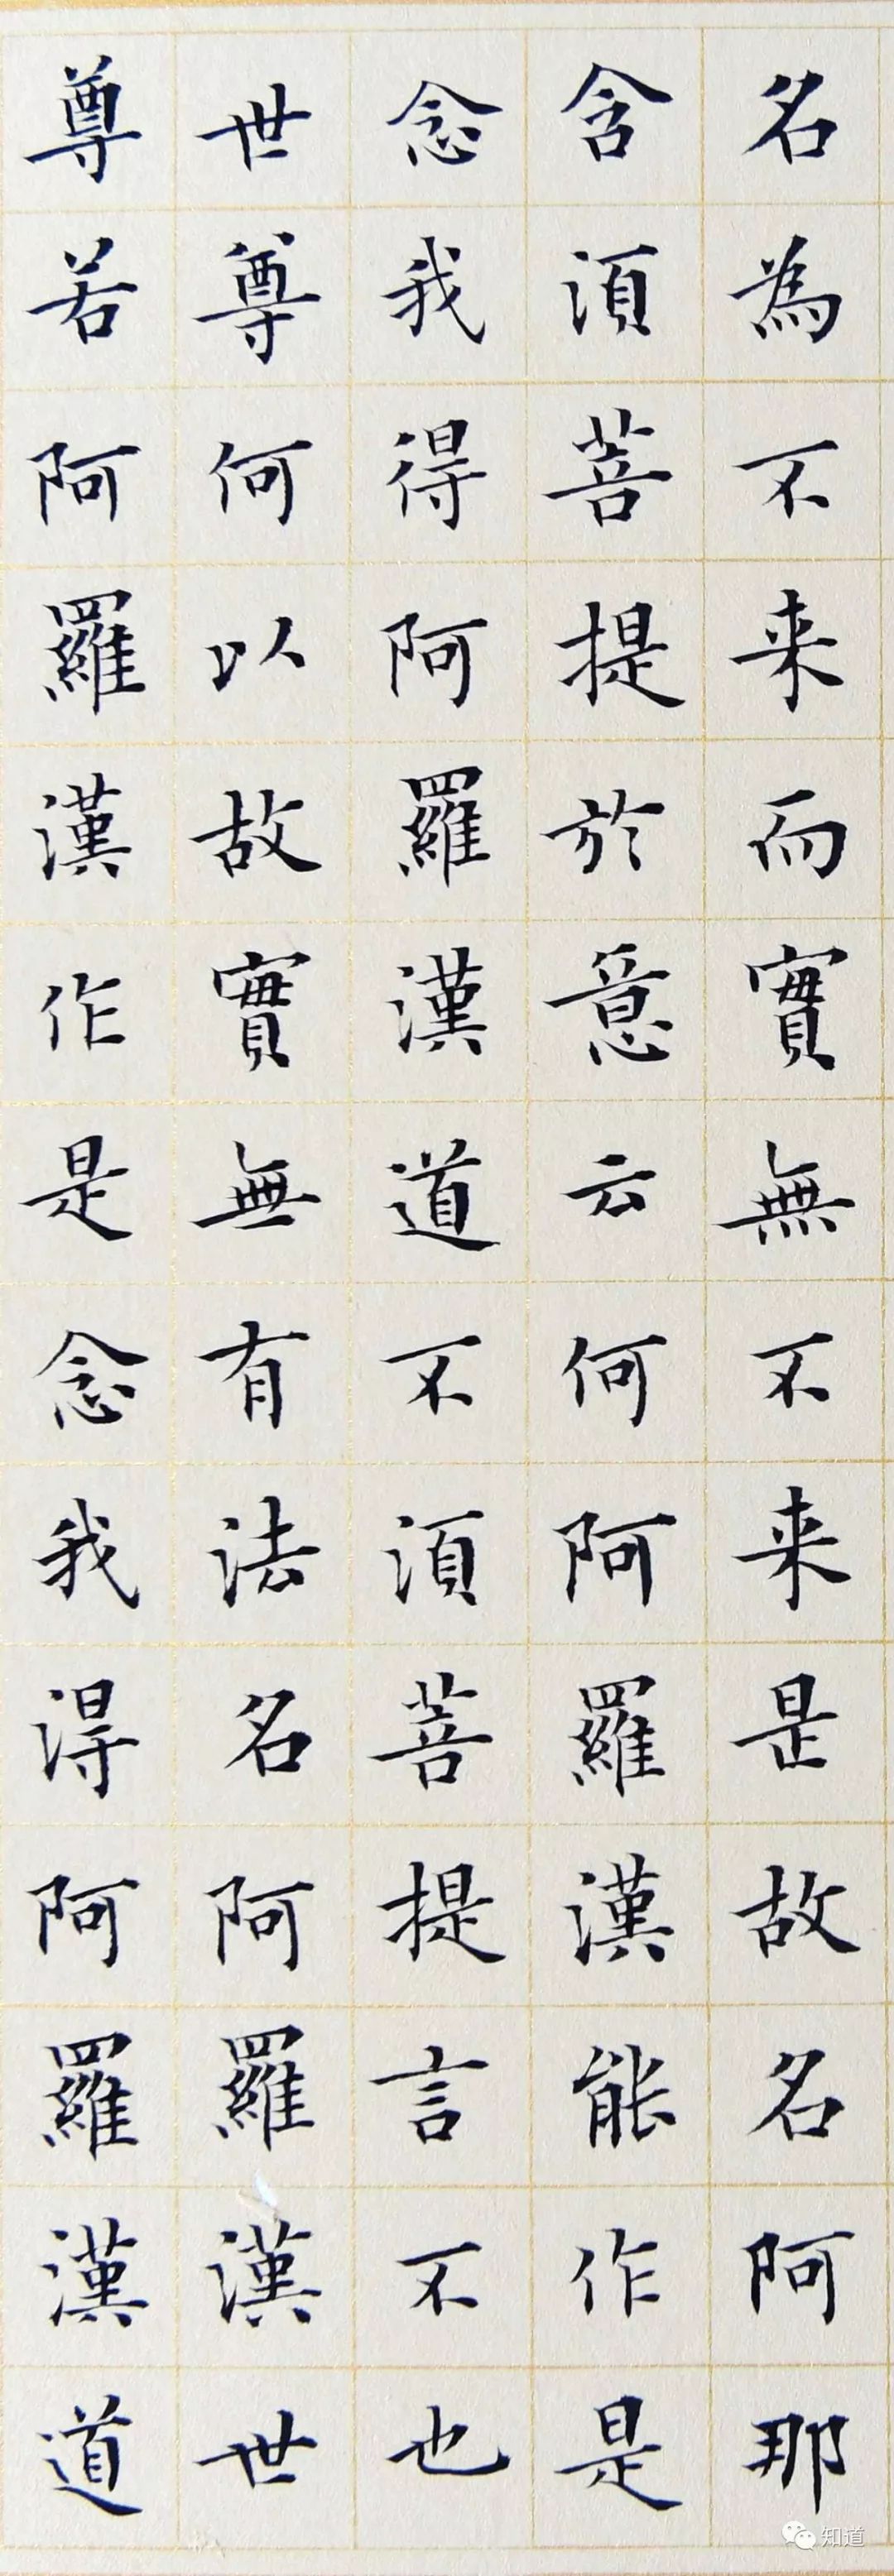 名為不来而實無不来是故名阿那
含湏菩提於意云何阿羅漢能作是
念我得阿羅漢道不湏菩提言不也
世尊何以故實無有法名阿羅漢世
尊若阿羅漢作是念我淂阿羅漢道
知道